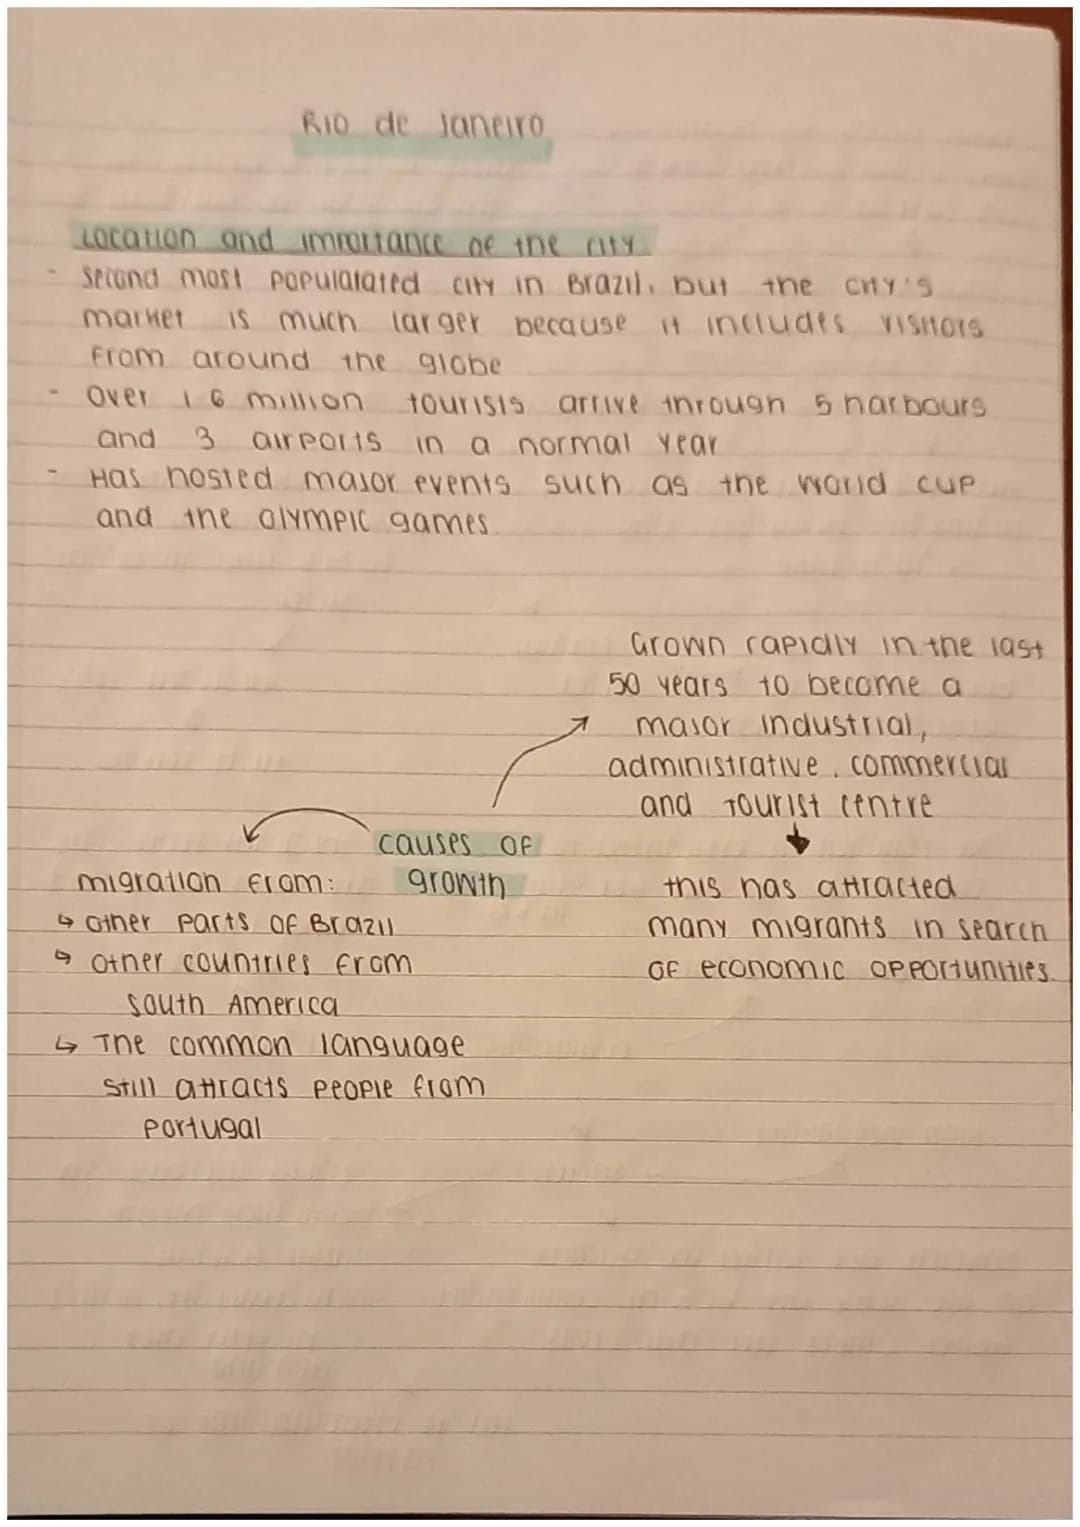 Rio de Janeiro
Location and importance of the city
- Second most populatated city in Brazil, but the city's
market is much larger because it includes visitors
from around the globe
- Over 1.6 million tourists arrive through 5 harbours
and 3 airports in a normal year
- Has hosted major events such as the World cup
and the Olympic games.
Grown rapidly in the last
50 years to become a
major industrial,
administrative, commercial
and Tourist centre
this has attracted
many migrants in search
of economic opportunities.
causes of
growth
migration from:
↳ other parts of Brazil
↳ other countries from
South America
↳ The common language
still attracts people from
Portugal